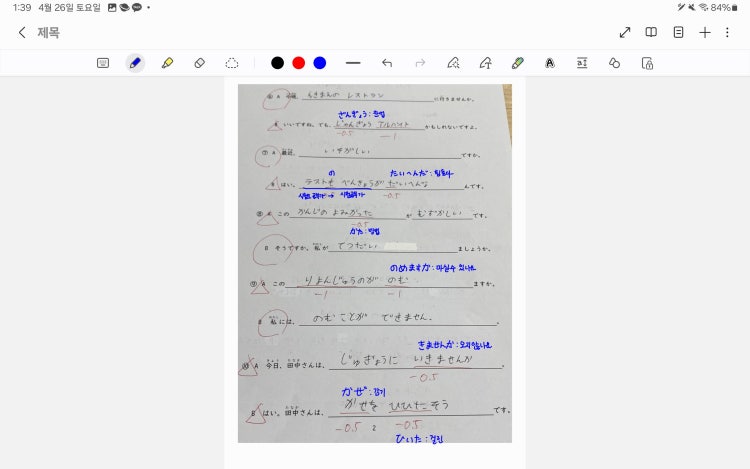 1:39 4월 26일 토요일 84%
제목
⑥ A 今度、もきまんの レストラン に行きませんか。
ざんぎょう : 잔업
B いいですね。でも、じゃんぎょう アルバイト かもしれないですよ。
-0.5 -1
⑦ A 最近、いそがしい ですか。
の たいへんだ : 힘들다
B はい。テストも べんきょうが だいへんな んです。
-0.5
⑧ A この かんじの よみかった が むずかしい です。
-0.5
かた : 방법
B そうですか。私が てつだい ましょうか。
のめますか : 마실수 있나요
⑨ A この りよんじゅうのが のむ ますか。
-1 -1
B 私には、のむ ことが できません。
きませんか : 오지않나요
⑩ A 今日、田中さんは、じゅぎょうに いきませんか。
-0.5
かぜ : 감기
B はい。田中さんは、がせを ひひたそう です。
-0.5 2 -0.5
ひいた : 걸린